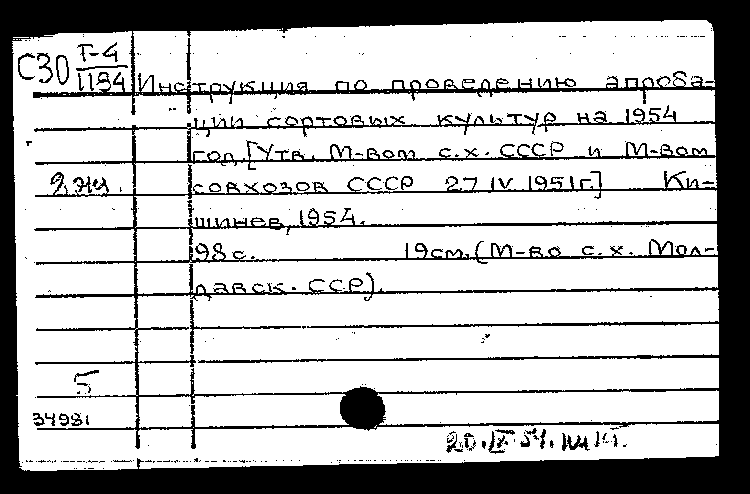 С30 Т-4
1184 Инструкция по проведению апроба-
ции сортовых культур на 1954
год. [Утв. М-вом с.х. СССР и М-вом
2 экз. совхозов СССР 27 IV 1951г.] Ки-
шинев, 1954.
98 с. 19см. (М-во с.х. Мол-
давск. ССР).
5
34981
20.IX 54.